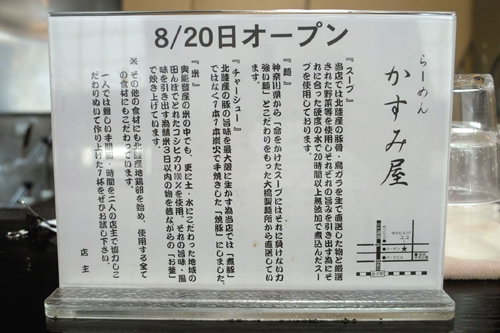 8/20日オープン
らーめん
かすみ屋
『スープ』
当店では北陸産の豚骨・鳥ガラを全て直送した物と厳選
された野菜等を使用しそれぞれの旨みを引き出す為にそ
れに合った硬度の水で20時間以上無強加で煮込んだスー
プを使用しております。
『麺』
神奈川県から、命をかけたスープにはそれに負けない力
強い麺』とこだわりをもった大橋製麺所から直送してい
ます。
『チャーシュー』
北陸産の豚の旨味を最大限に生かす為当店では「煮豚」
ではなく1本1本炭火で手焼きした「焼豚」にしました。
『米』
奥能登産の米の中でも、更に土・水にこだわった地域の
田んぼでとれたコシヒカリ100%を使用。それの旨味・風
味を引き出す為精米3日以内の物を昔ながらの「お釜」
で焼き上げています。
※その他の食材にも北陸産地鶏卵を始め、使用する全て
の食材にもこだわっています。
一人では難しい手間暇・時間を二人の店主で協力しこ
だわりぬいて作り上げた1杯をぜひお試し下さい。
店主